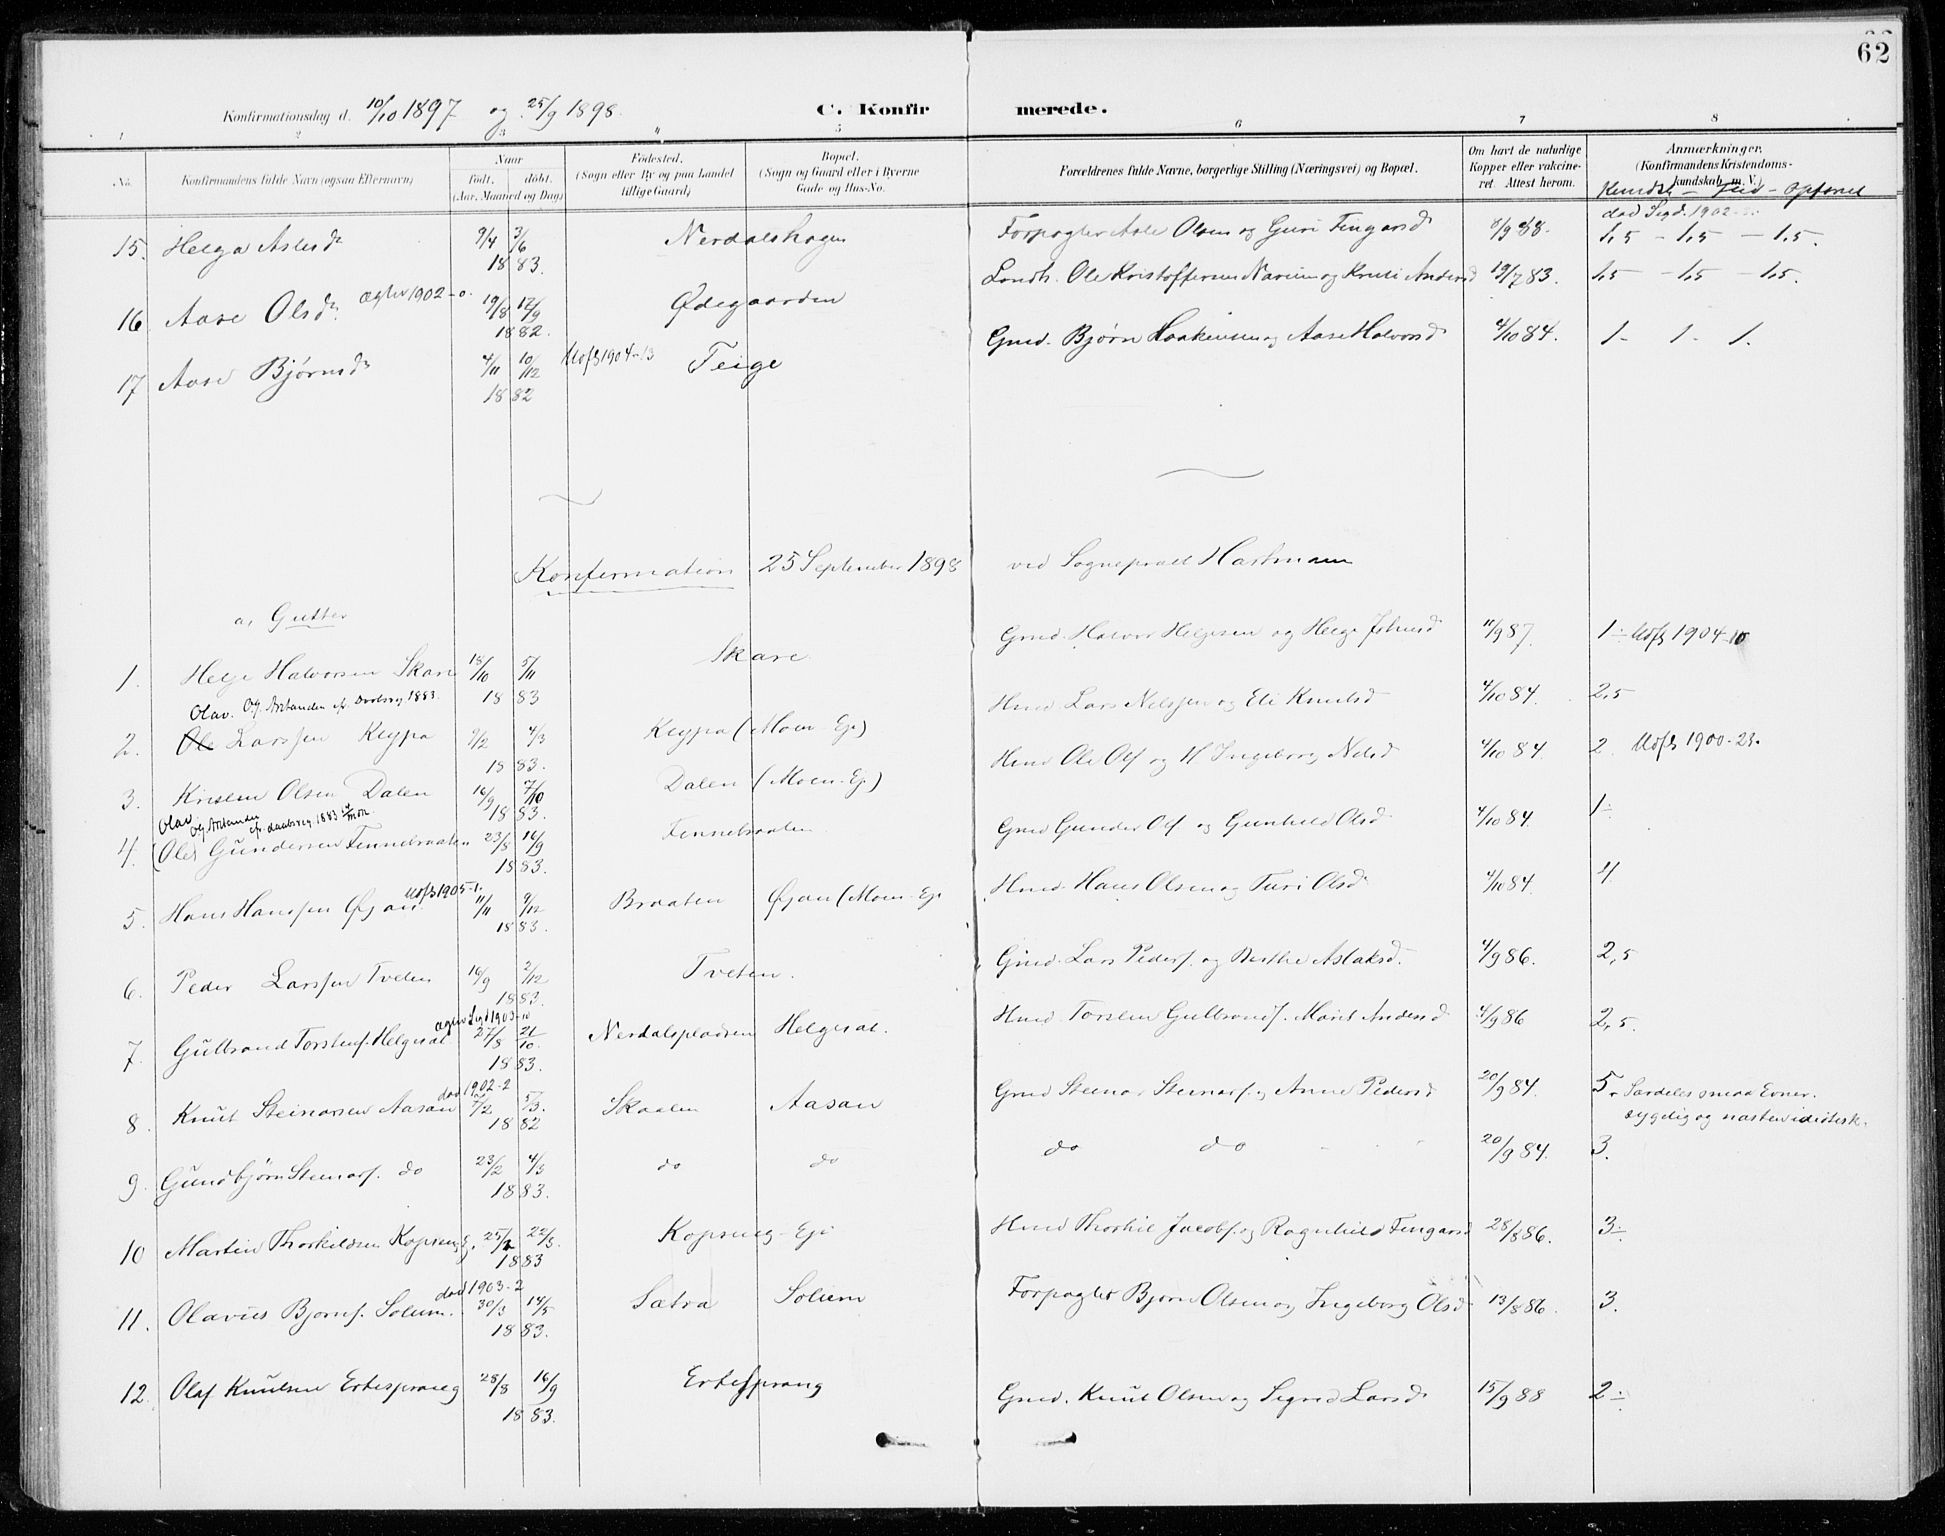 62
Konfirmationsdag d. 10/10 1897 og 25/9 1898.
C. Konfirmerede.
1 2 3 4 5 6 7 8
No.
Konfirmandens fulde Navn (ogsaa Efternavn)
Naar
født. døbt.
(Aar, Maaned og Dag)
Fødested.
(Sogn eller By og paa Landet
tillige Gaard)
Bopæl.
(Sogn og Gaard eller i Byerne
Gade og Hus-No.
Forældrenes fulde Navne, borgerlige Stilling (Næringsvei) og Bopæl.
Om havt de naturlige
Kopper eller vakcine-
ret. Attest herom.
Anmærkninger.
(Konfirmandens Kristendoms-
kundskab m. V.)
Kundsk – Flid – Opførsel
15. Helga Aslesdr 9/4 3/6 1883. Nerdalshagen Forpagter Asle Olsen og Guri Fingarsd 8/9 88. 1,5 – 1,5 – 1,5.
død Sigd. 1902
16. Aase Olsdr. ægtev 1902 19/8 17/9 1882. Ødegaarden Landh. Ole Kristoffersen Narum og Kristi Andersd 19/7 83. 1,5 – 1,5 – 1,5.
17 Aase Bjørnsdr 4/11 10/12 1882 Utofl 1904-13 Teige Gmd. Bjørn Haakensen og Aase Halvorsd 4/10 84. 1 – 1 – 1.
Konfirmation 25 September 1898 ved Sogneprest Hartmann
a, Gutter
1. Helge Halvorsen Skare 13/10 5/11 1883 Skare. Gmd. Halvor Helgesen og Helge Johnsd 11/9 87. 1 ÷ Utofl 1904-10
Olav. Og. Anstanden ef. Daabsreg 1883.
2. Ole Larssen Kleppa 9/2 4/3 1883. Kleppa (Moen-Eje) Hmd Lars Nelssen og Eli Knutsd 4/10 84. 2,5
3. Kristen Olsen Dalen 16/9 7/10 1883. Dalen (Moen-Eje) Hmd Ole Ols og H Ingeborg Nelsd 4/10 84. 2 Utofl 1900-23.
Olav
ef. daabsreg. 1883
4. (Ole) Gundersen Finnebraaten 23/8 16/9 1883. Finnebraaten Gmd Gunder Ols og Gunhild Olsd 4/10 84. 1÷
5. Hans Hanssen Øyan. Utofl 1905-1. 11/11 9/12 1883. Braaten Øyan (Moen-Eje Hmd. Hans Olsen og Turi Olsd 4/10 84. 4
6. Peder Larssen Tveten 16/9 2/12 1883. Tveten. Gmd. Lars Peders. og Berthe Aslaksd. 4/9 86. 2,5
7. Gulbrand Torstens. Helgesæt 27/8 21/10. 1883. Nerdalspladsen Helgesæt. Hmd Torsten Gulbrands. Marit Andersd 4/9 86 2,5.
8. Knut Steinarsen Aasan død 1902-2 2/2 5/3. 1882 Skaalen Aasan Gmd Steinar Steinars. og Anne Pedersd 20/9 84. 5. Særdeles smaa Evner.
sygelig og næsten idiotisk.
9. Gundbjørn Steinars. do 23/2 4/3 1883. do do do do 20/9 84. 3.
10 Martin Thorkildsen Kopseng 25/2 22/3. 1883 Kopseng-Eje Hmd Thorkil Jacobs. og Ragnhild Fingarsd 28/8 86. 3÷
11. Olavus Bjørns. Solum. død 1903-2 30/3 14/5 1883. Sætra Solum Forpagter Bjørn Olsen og Ingeborg Olsd 13/8 86. 3.
12. Olaf Knutsen Ertesprang 28/8 16/9 1883. Ertesprang Gmd. Knut Olsen og Sigrid Larsd 15/9 88 2÷